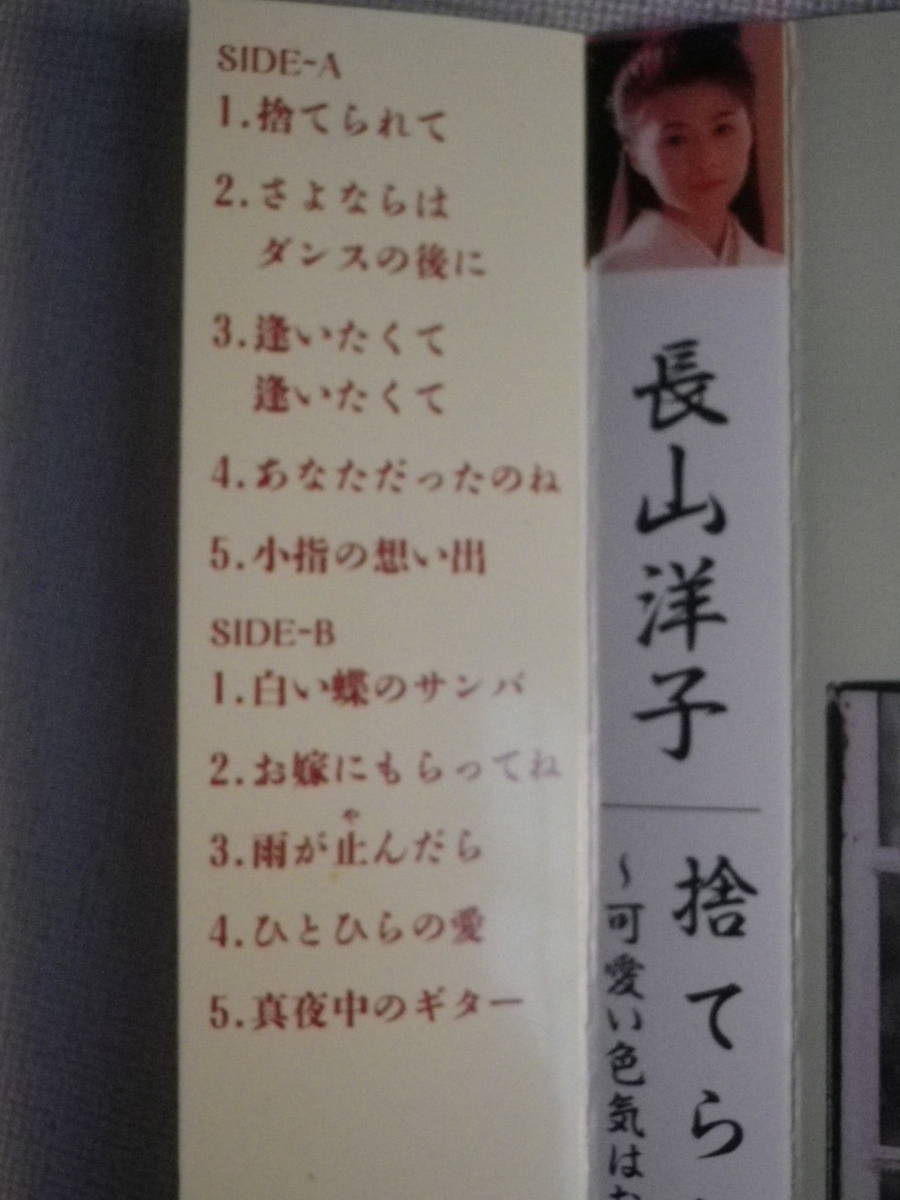 SIDE-A
1.捨てられて
2.さよならは
ダンスの後に
3.逢いたくて
逢いたくて
4.あなただったのね
5.小指の想い出
SIDE-B
1.白い蝶のサンバ
2.お嫁にもらってね
や
3.雨が止んだら
4.ひとひらの愛
5.真夜中のギター
長山洋子
捨てら
～可愛い色気は